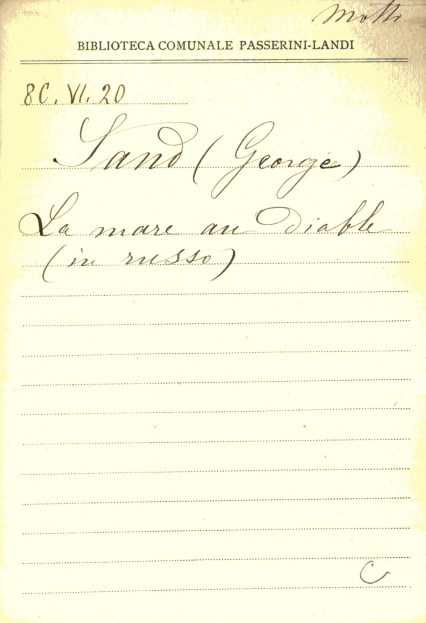 Motti
BIBLIOTECA COMUNALE PASSERINI-LANDI
8C. VI. 20
Sand (George)
La mare au Diable
(in russo)
C